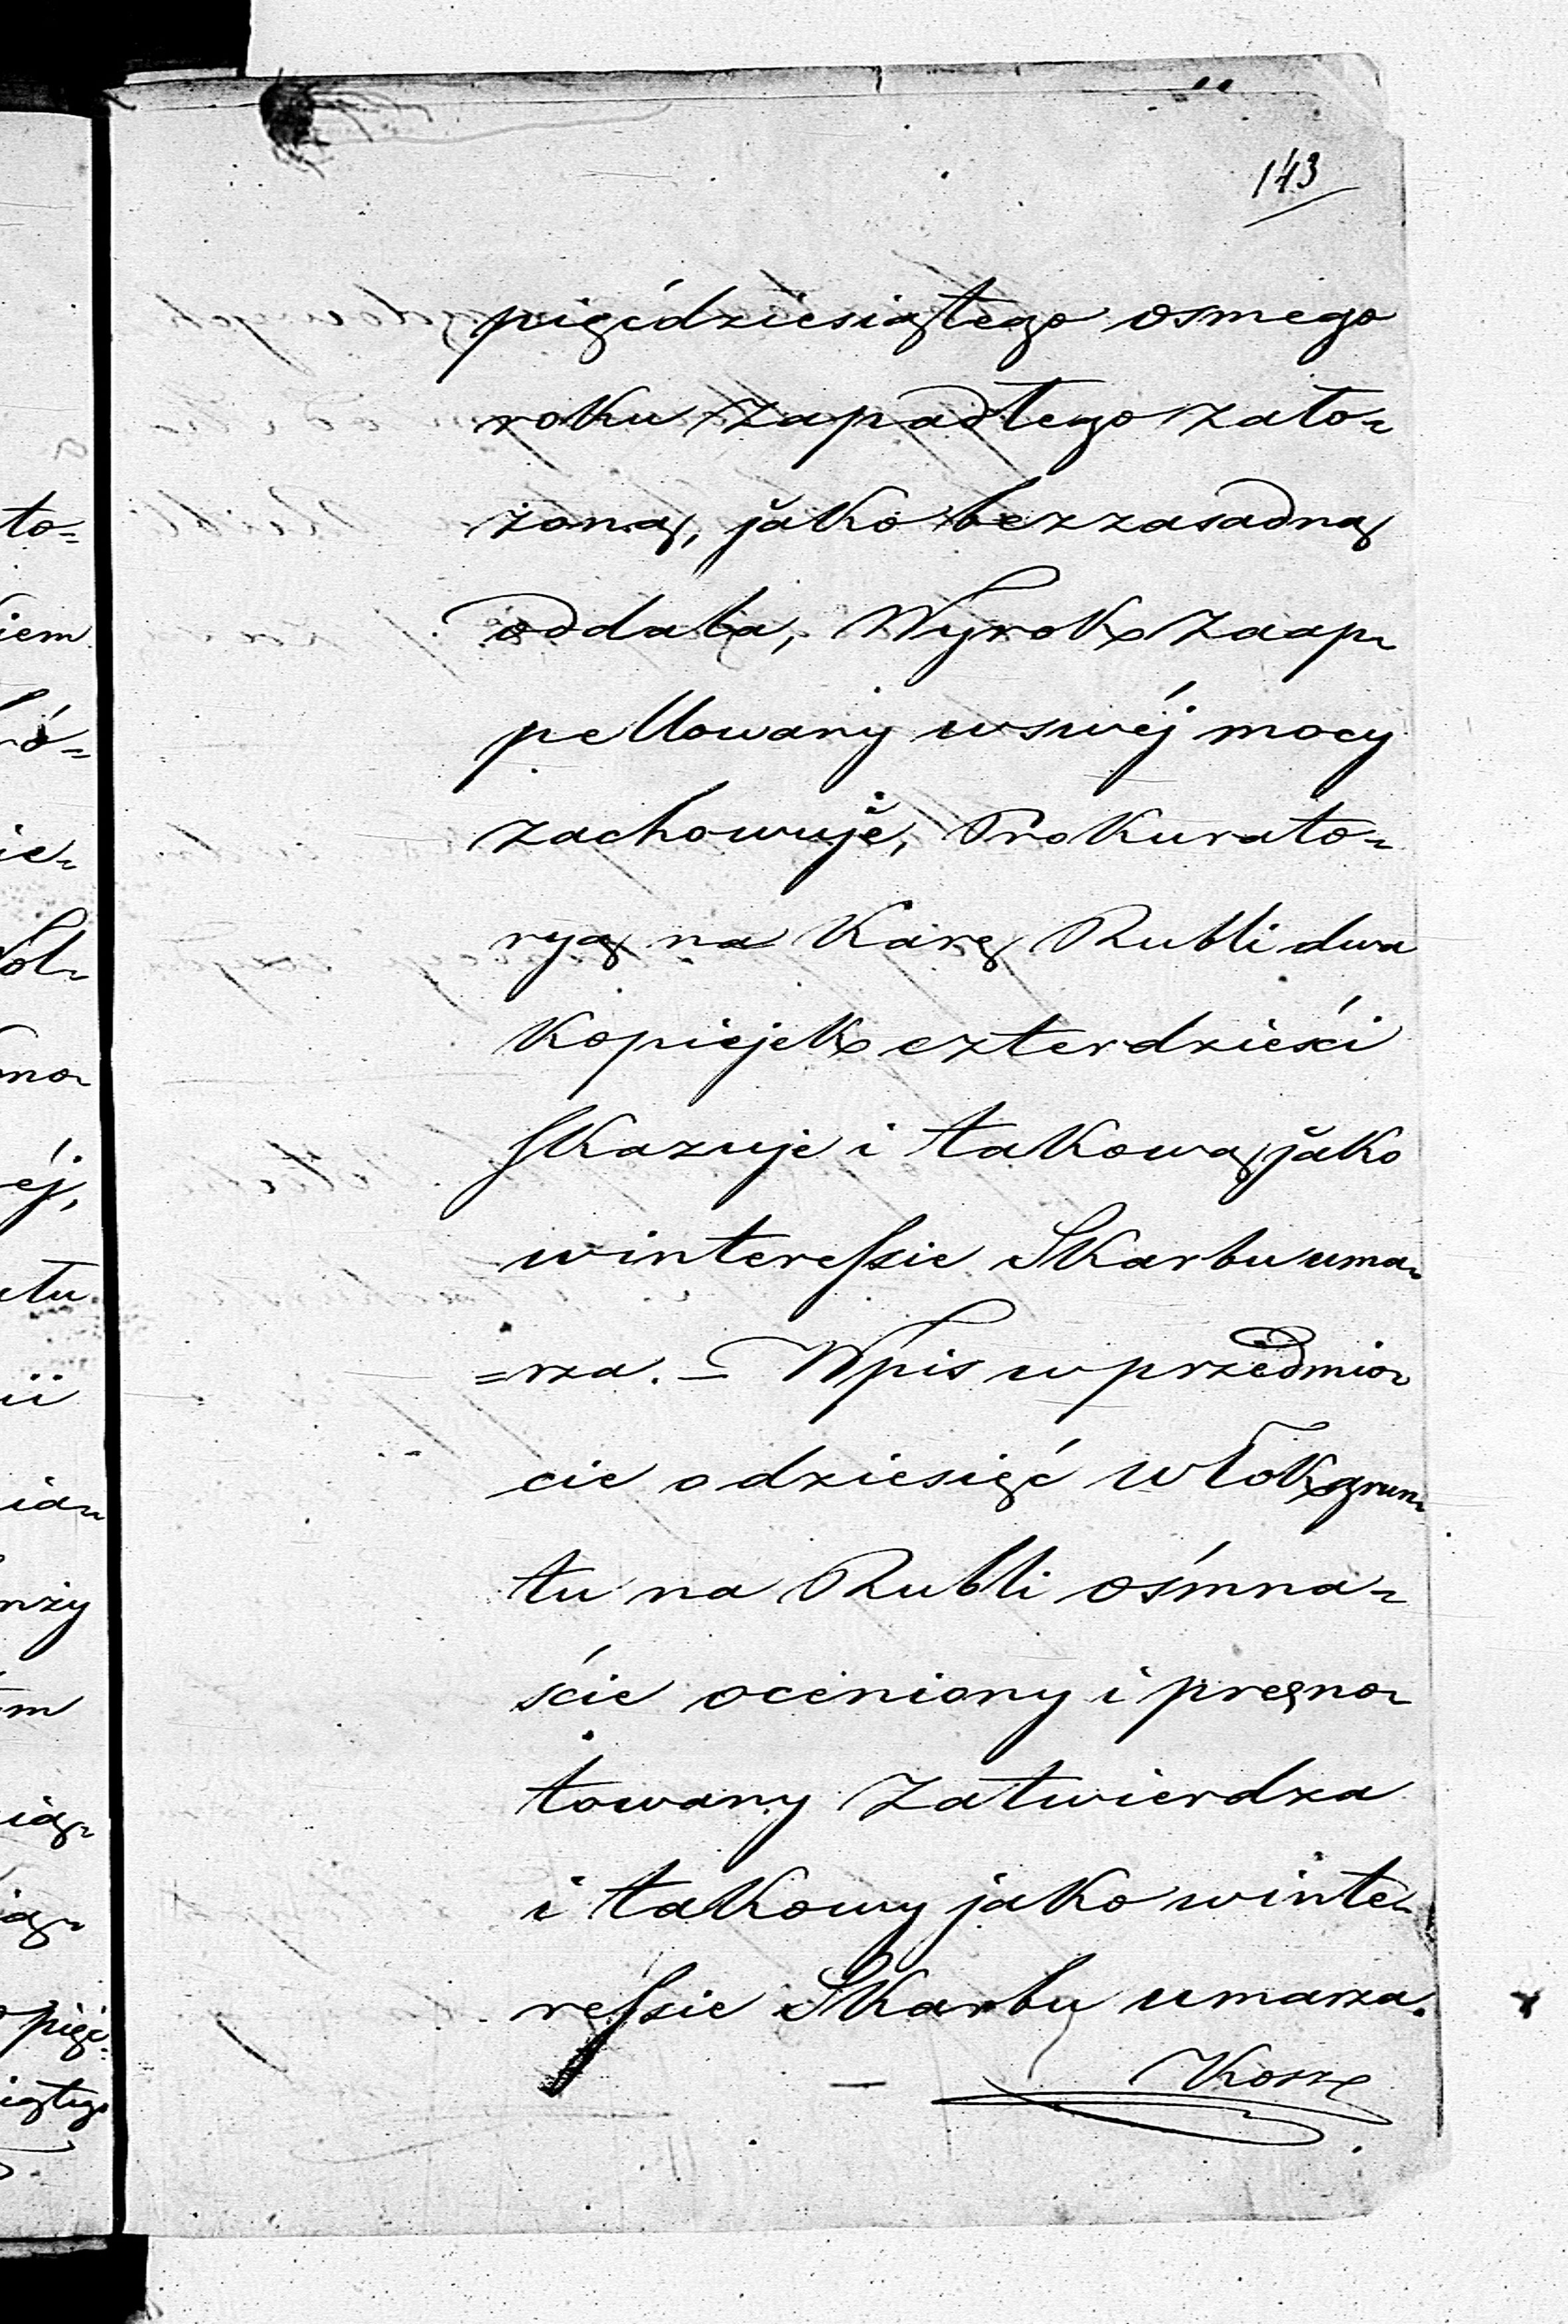 143
pięćdziesiątego osmego
roku zapadłego zało-
żoną, jako bezzasadną
oddala, Wyrok zaap-
pellowany w swéj mocy
zachowuje, Prokurato-
ryą na karę Rubli dwa
kopiejek czterdzieści
skazuje i takową jako
w interessie Skarbu uma-
=rza. – Wpis w przedmio-
cie o dziesięć włok grun-
tu na Rubli ośmna-
ście oceniony i preno-
towany zatwierdza
i takowy jako w inte-
ressie Skarbu umarza.
to=
iem
ó=
ie-
no-
éj,
tu
ii
ia-
m
ią-
pięć-